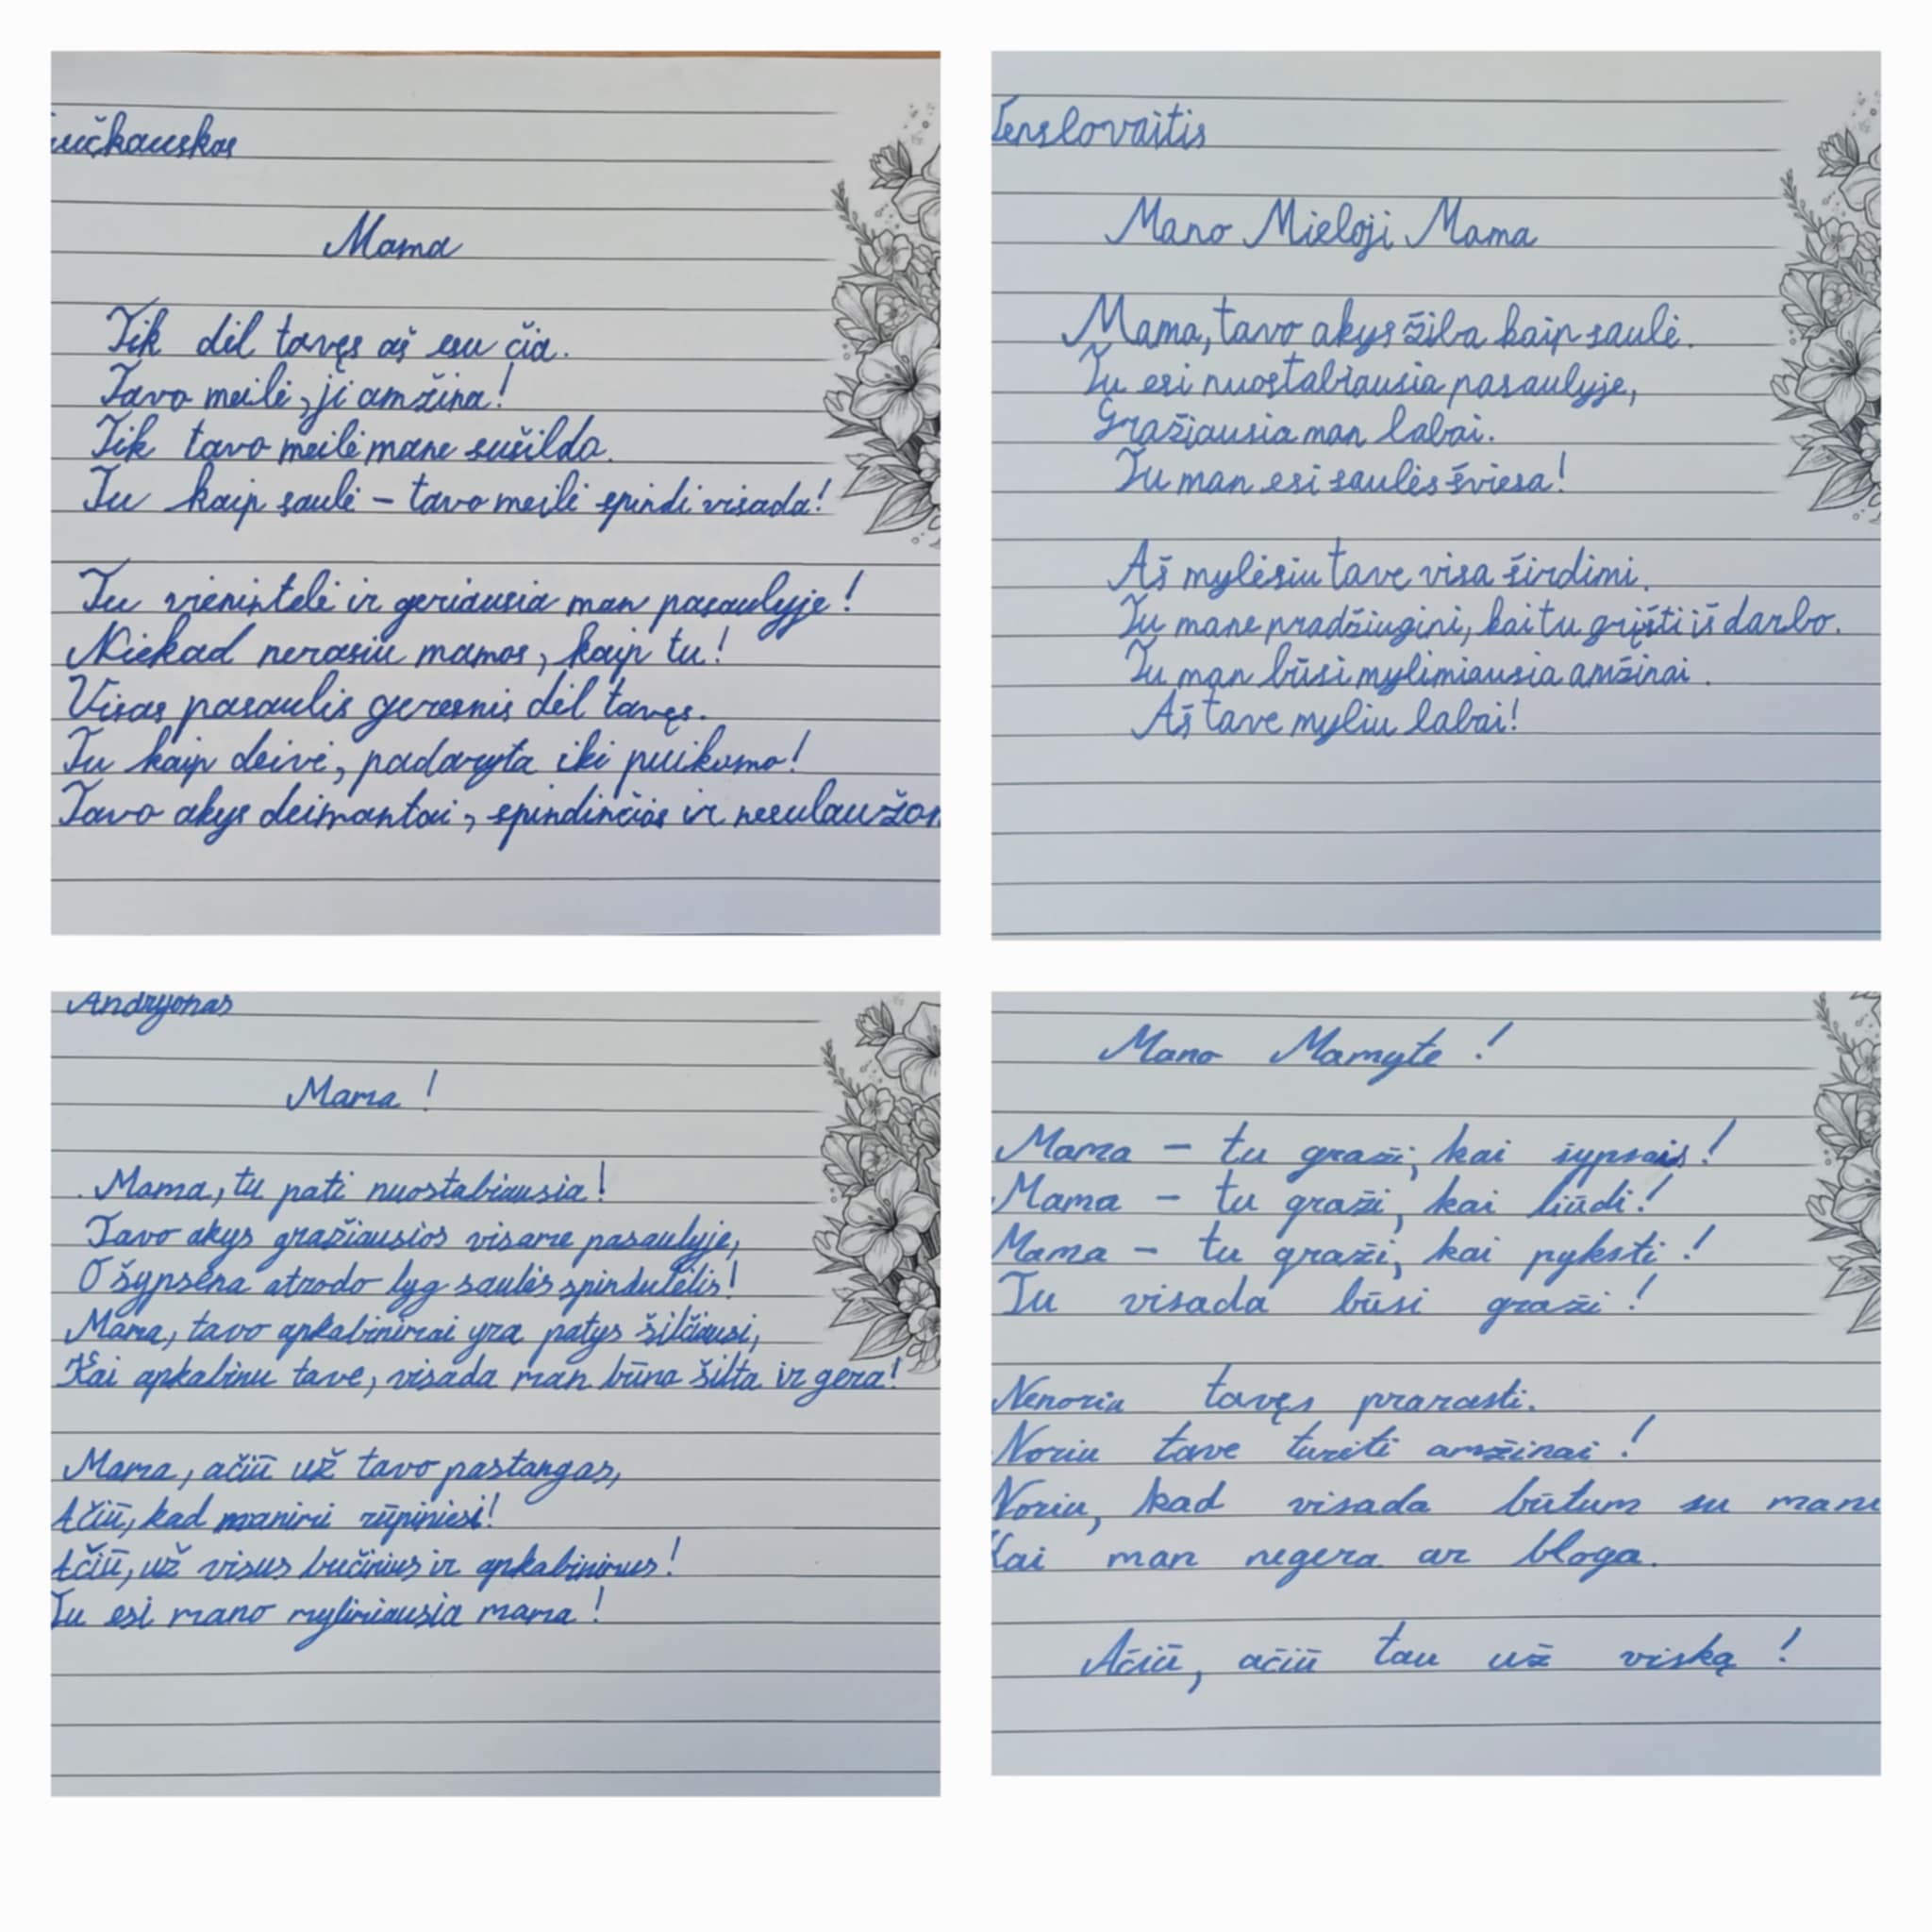 Mama
Tik dėl tavęs aš esu čia.
Tavo meilė, ji amžina!
Tik tavo meilė mane sušildo.
Tu kaip saulė – tavo meilė spindi visada!
Tu vienintelė ir geriausia man pasaulyje!
Niekad nerasiu mamos, kaip tu!
Visas pasaulis geresnis dėl tavęs.
Tu kaip deivė, padaryta iki puikumo!
Tavo akys deimantai, spindinčios ir
Mano Mieloji Mama
Mama, tavo akys žiba kaip saulė.
Tu esi nuostabiausia pasaulyje,
Gražiausia man labai.
Tu man esi saulės šviesa!
Aš mylėsiu tave visa širdimi.
Tu mane pradžiugini, kai tu grįšti iš darbo.
Tu man būsi mylimiausia amžinai.
Aš tave myliu labai!
Andryonas
Mama!
Mama, tu pati nuostabiausia!
Tavo akys gražiausios visame pasaulyje,
O šypsena atrodo lyg saulės spindulėlis!
Mama, tavo apkabinimai yra patys šilčiausi,
Kai apkabinu tave, visada man būna šilta ir gera!
Mama, ačiū už tavo pastangas,
Ačiū, kad manimi rūpiniesi!
Ačiū, už visus bučinius ir apkabinimus!
Tu esi mano mylimiausia mama!
Mano Mamyte!
Mama – tu graži, kai šypsais!
Mama – tu graži, kai liūdi!
Mama – tu graži, kai pyksti!
Tu visada būsi graži!
Nenoriu tavęs prarasti.
Noriu tave turėti amžinai!
Noriu, kad visada būtum su
Kai man negera ar bloga.
Ačiū, ačiū tau už viską!